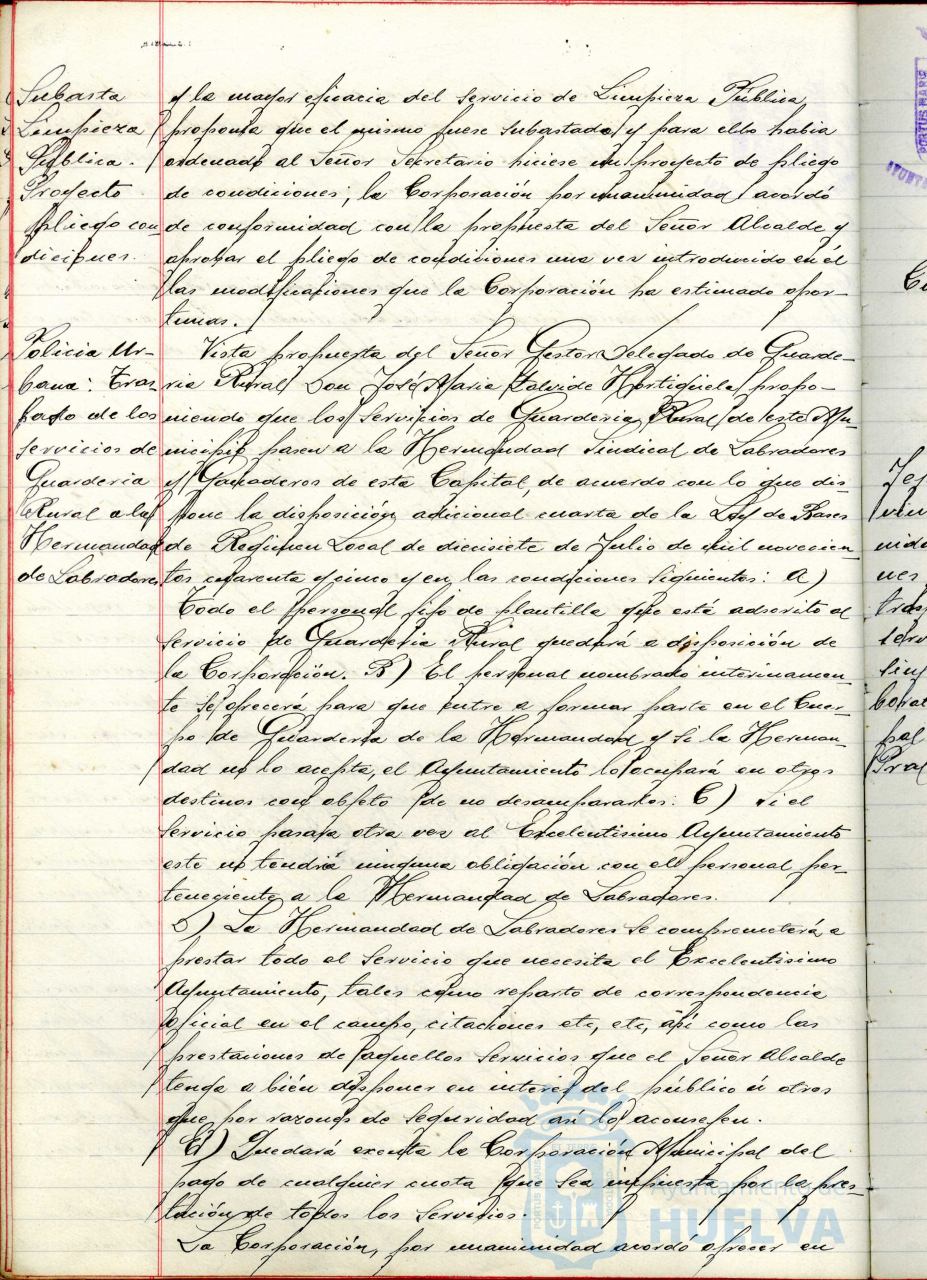 Subasta
Limpieza
Pública.
Proyecto
pliego con-
diciones.
y la mayor eficacia del servicio de Limpieza Pública,
proponía que el mismo fuese subastado, y para ello había
ordenado al Señor Secretario hiciese un proyecto de pliego
de condiciones; la Corporación por unanimidad acordó
de conformidad con la propuesta del Señor Alcalde y
aprobar el pliego de condiciones una vez introducido en él
las modificaciones que la Corporación ha estimado opor-
tunas.
Policia Ur-
bana: Tras
paso de los
servicios de
Guarderia
Rural a la
Hermandad
de Labradores
Vista propuesta del Señor Gestor Delegado de Guarde-
ria Rural Don José Maria Hortigüela, propo-
niendo que los Servicios de Guarderia Rural de este Mu-
nicipio pasen a la Hermandad Sindical de Labradores
y Ganaderos de esta Capital, de acuerdo con lo que dis-
pone la disposición adicional cuarta de la Ley de Bases
de Regimen Local de diecisiete de Julio de mil novecien-
tos cuarenta y cinco y en las condiciones siguientes: A)
Todo el personal fijo de plantilla que está adscrito al
servicio de Guarderia Rural quedará a disposición de
la Corporación. B) El personal nombrado interinamen-
te se ofrecerá para que entre a formar parte en el Cuer-
po de Guarderia de la Hermandad y si la Herman-
dad no lo acepta, el Ayuntamiento lo ocupará en otros
destinos con objeto de no desampararlos. C) Si el
servicio pasara otra vez al Excelentisimo Ayuntamiento
este no tendrá ninguna obligación con el personal per-
teneciente a la Hermandad de Labradores.
D) La Hermandad de Labradores se comprometerá a
prestar todo el servicio que necesita el Excelentisimo
Ayuntamiento, tales como reparto de correspondencia
oficial en el campo, citaciones etc, etc, asi como las
prestaciones de aquellos servicios que el Señor Alcalde
tenga a bién disponer en interes del público ú otros
que por razones de seguridad asi lo aconsejen.
E) Quedará exenta la Corporación Municipal del
pago de cualquier cuota que sea impuesta por la pres-
tación de todos los servicios.
La Corporación, por unanimidad acordó ofrecer en
Ayuntamiento de
HUELVA
PORTUS MARIS